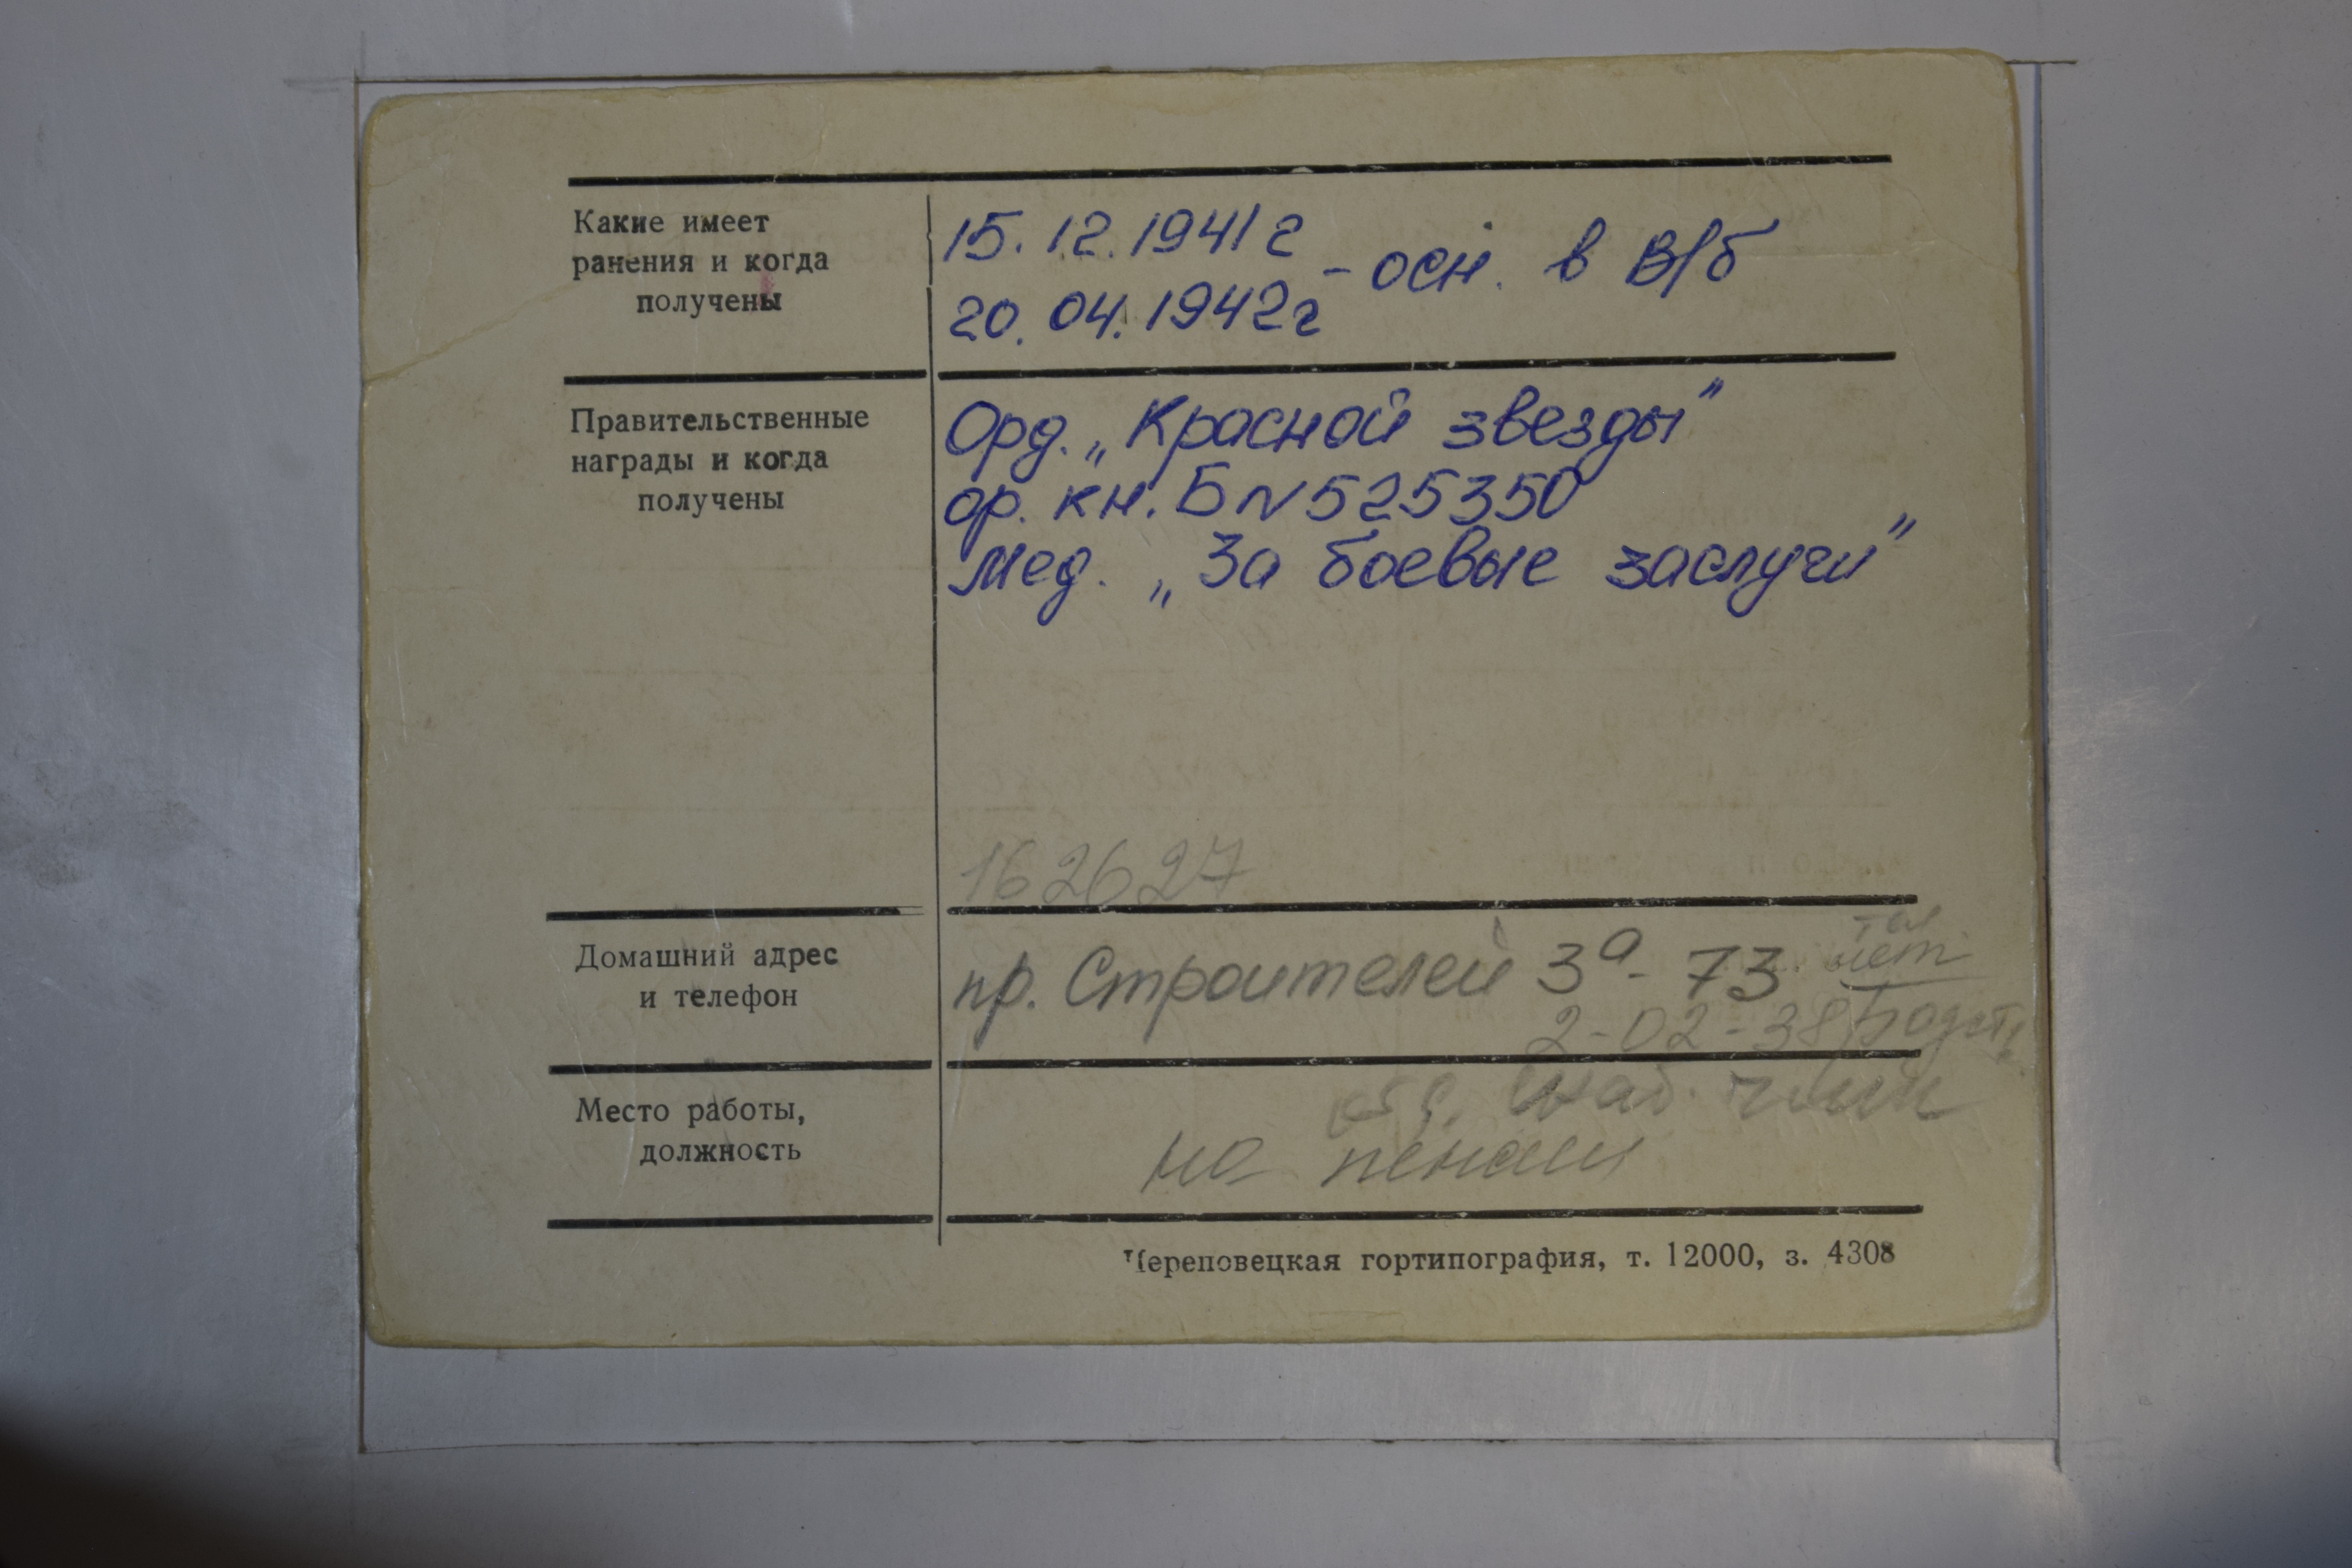 Какие имеет
ранения и когда
получены
15.12.1941г
20.04.1942г
- осн. в В/б
Правительственные
награды и когда
получены
Орд. „Красной звезды"
ор. кн. Б N 525350
мед. „За боевые заслуги"
162627
Домашний адрес
и телефон
пр. Строителей 3а - 73
тел
нет
2-02-38
Место работы,
должность
на пенсии
Череповецкая гортипография, т. 12000, з. 4308